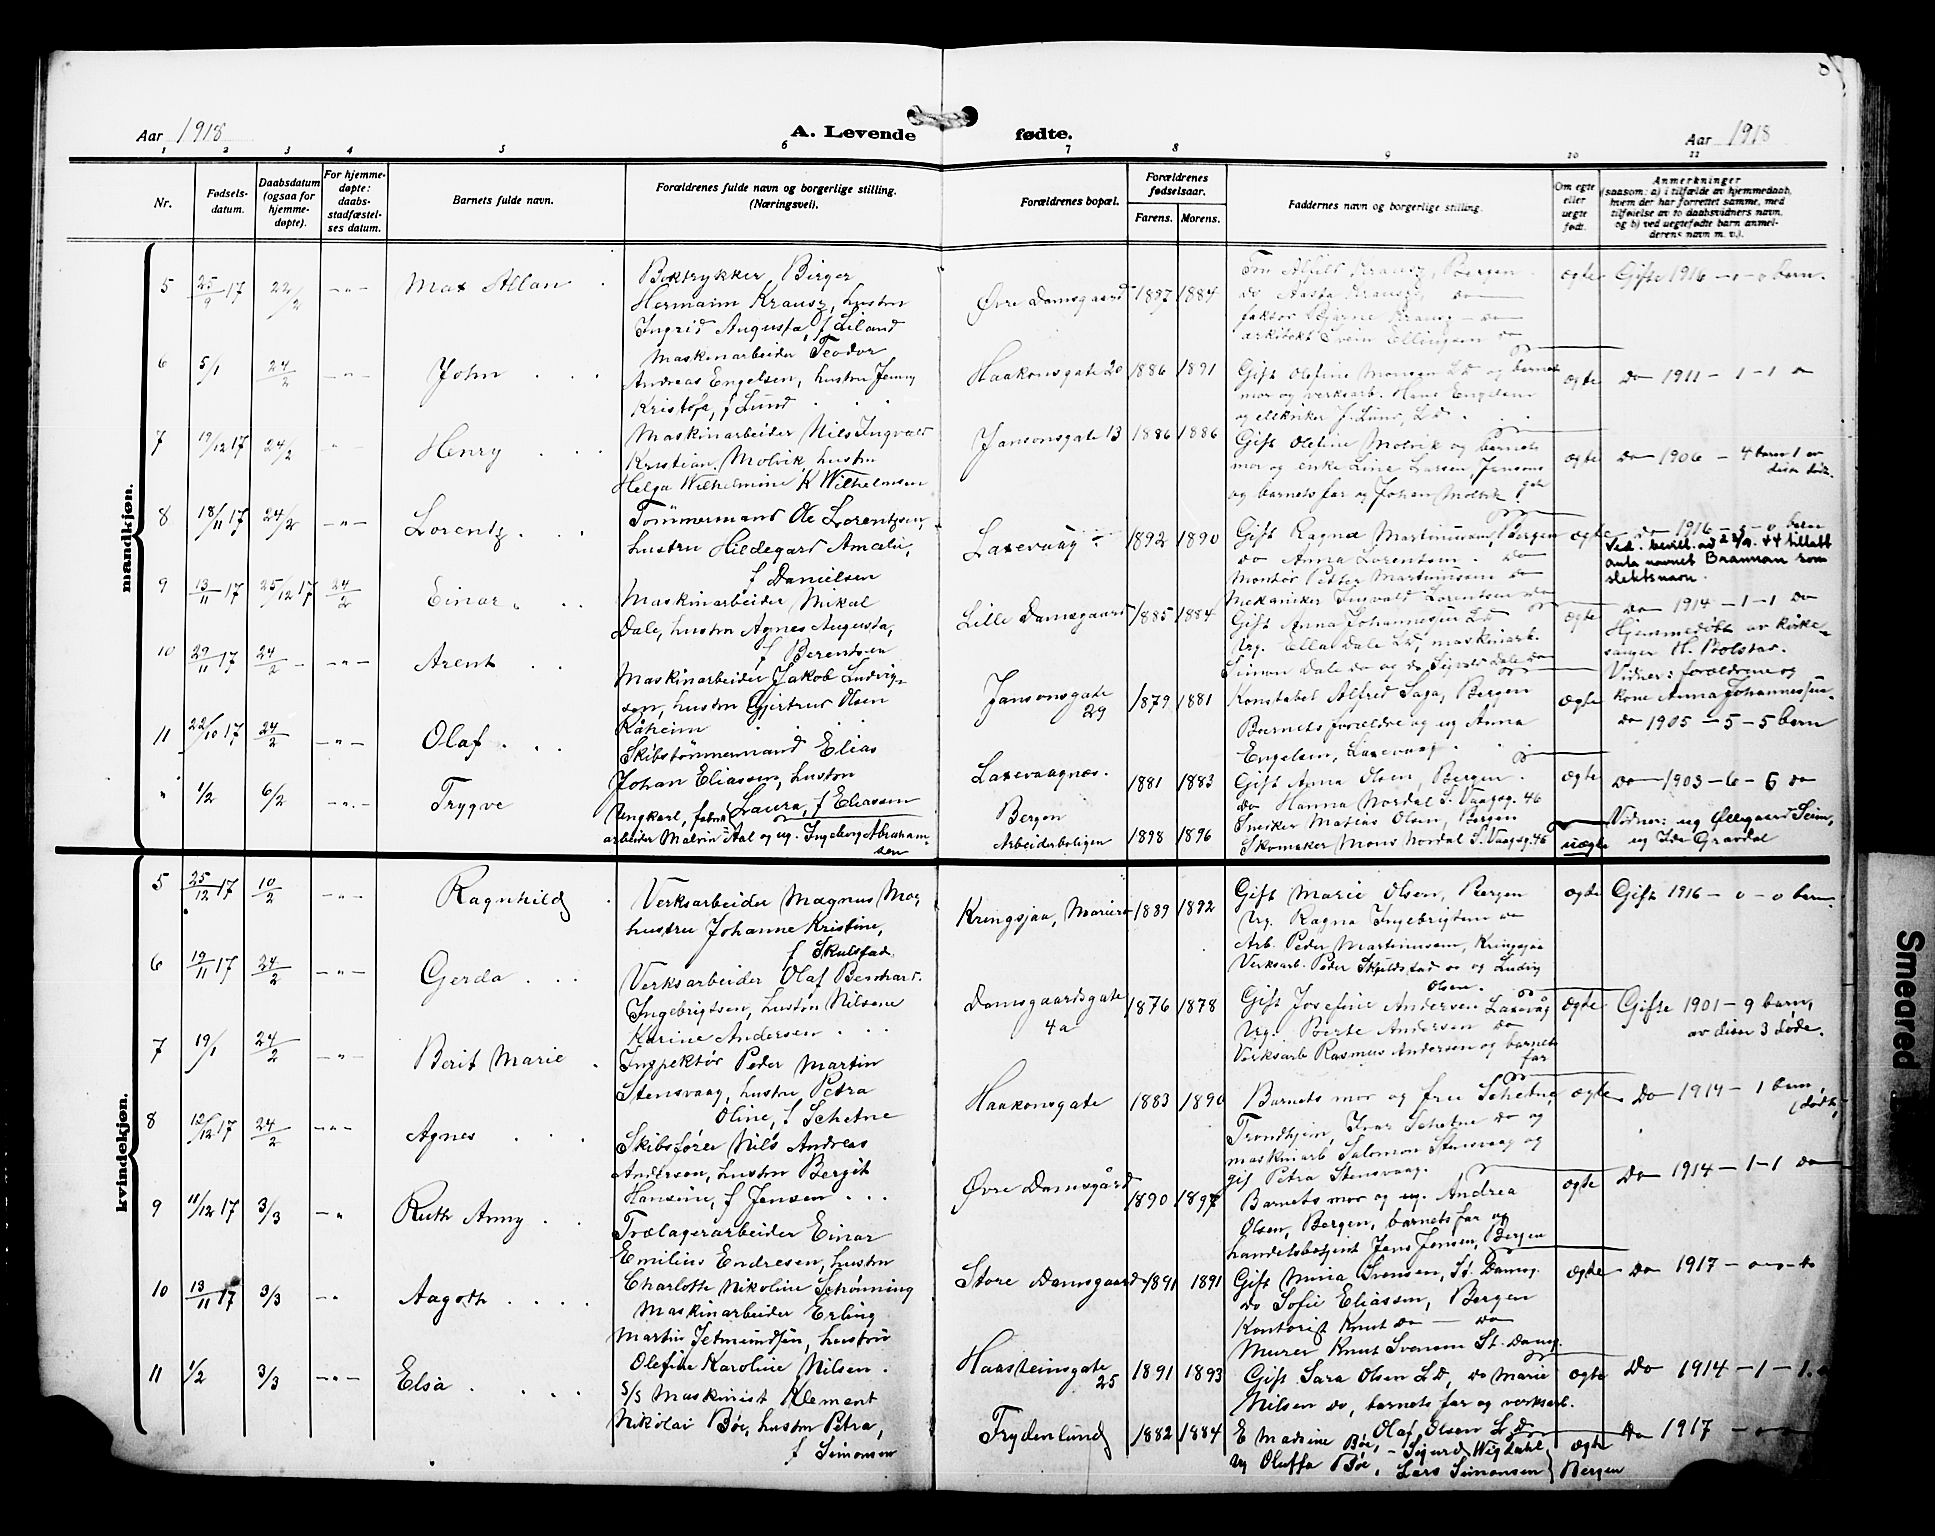 Aar 1918
A. Levende fødte.
Aar 1918
1 2 3 4 5 6 7 8 9 10 11
Nr.
Fødsels-datum.
Daabsdatum (ogsaa for hjemme-døpte).
For hjemme-døpte: daabs-stadfæstel-ses datum.
Barnets fulde navn.
Forældrenes fulde navn og borgerlige stilling. (Næringsvei).
Forældrenes bopæl.
Forældrenes fødselsaar.
Farens. Morens.
Faddernes navn og borgerlige stilling.
Om egte eller uegte født.
Anmerkninger
(saasom: a) i tilfælde av hjemmedaab,
hvem der har forrettet samme, med
tilføielse av to daabsvidners navn,
og b) ved uegtefødte barn anmel-
derens navn m. v.).
mandkjøn.
5 25/9 17 22/2 -"- Max Allan
Boktrykker Birger
Hermann Krausz, hustru
Ingrid Augusta, f Liland
Øvre Damsgaard 1897 1884
Fru Alfild Krausz, Bergen
do Aasta Krausz, do
faktor Bjarne Krausz do
arkitekt Svein Ellingsen do
ægte Gifte 1916 - 0 - 0 barn.
6 5/1 24/2 -"- John
Maskinarbeider Teodor
Andreas Engelsen, hustru Jenny
Kristofa, f Lund
Haakonsgate 20 1886 1891
Gift Olefine Monsen L D og barnets
mor og verksarb. Hans Engelsen
og elektriker J. Lund, L.D.
ægte Do 1911 - 1 - 1 do
7 19/12 17 24/2 " Henry
Maskinarbeider Nils Ingvald
Kristian Molvik, hustru
Helga Wilhelmine f Wilhelmsen
Jansonsgate 13 1886 1886
Gift Olefine Molvik og barnets
mor og enke Line Larsen, Jansons
og barnets far og Johan Molvik gate
ægte Do 1906 - 4 barn 1 av
disse død.
8 18/11 17 24/2 -"- Lorentz
Tømmermand Ole Lorentzen,
hustru Hildegard Amalie,
f Danielsen
Laxevaag 1892 1890
Gift Ragna Martinussen, Bergen
do Anna Lorentsen do
Montør Petter Martinussen do
Mekaniker Ingvald Lorentsen do
ægte do 1916 - 0 - 0 barn
Ved bevill. av 22/9. 44 tillatt
anta navnet Brannan som
slektsnavn.
9 13/11 17 25/12 17 24/2 Einar
Maskinarbeider Mikal
Dale, hustru Agnes Augusta,
f Berentsen
Lille Damsgaard 1885 1884
Gift Anna Johannesen L D
Ug. Ella Dale L D, maskinarb.
Simon Dale do og do Sigvald Dale do
ægte do 1914 - 1 - 1 do
Hjemmedøbt av kirke-
sanger H. Bolstad.
Vidner: forældrene og
kone Anna Johannessen
10 29/11 17 24/2 -"- Arent
Maskinarbeider Jakob Ludvig-
sen, hustru Gjertrud Olsen
Råheim
Jansonsgate
29 1879 1881
Konstabel Alfred Saga, Bergen
Barnets forældre og ug Anna
Engelsen, Laxevaag
ægte do 1905 - 5 - 5 barn
11 22/10 17 24/2 -"- Olaf
Skibstømmermand Elias
Johan Eliassen, hustru
Laura, f Eliassen
Laxevaagnes. 1881 1883
Gift Anna Olsen, Bergen
do Hanna Nordal S. Vaagsg. 46
Snekker Matias Olsen, Bergen
Skomaker Mons Nordal S. Vaagsg. 46
ægte Do 1903 - 6 - 6 do
" 1/2 6/2 -"- Trygve
Ungkarl, fabrik-
arbeider Malvin Aal og ug. Ingeborg Abraham-
sen
Bergen
Arbeiderboligen 1898 1896
uægte
Vidner: ug Øllegaard Seim,
ug Ida Gravdal
kvindekjøn.
5 25/12 17 10/2 -"- Ragnhild
Verksarbeider Magnus Moe,
hustru Johanne Kristine,
f Skulstad
Kringsjaa, 1889 1892
Gift Marie Olsen, Bergen
Ug. Ragna Ingebrigtsen do
Arb. Peder Martinussen, Kringsjaa
Verksarb. Peder Skjelstad do og Ludvig
Olsen.
ægte Gift 1916 - 0 - 0 barn
6 19/11 17 24/2 -"- Gerda
Verksarbeider Olaf Bernhard
Ingebrigtsen, hustru Nilsene
Karine Andersen
Damsgaardsgate
4a 1876 1878
Gift Josefine Andersen Laxevåg
Ug. Berte Andersen do
Verksarb Rasmus Andersen og barnets
far
ægte Gifte 1901 - 9 barn,
av disse 3 døde.
7 19/1 24/2 -"- Berit Marie
Inspektør Peder Martin
Stensvaag, hustru Petra
Oline, f Schetne
Haakonsgate 1883 1890
Barnets mor og fru Schetne
Trondhjem, Ivar Schetne do og
maskinarb Salomon Stensvaag og
gif Petra Stensvaag.
ægte Do 1914 - 1 barn,
død
8 12/12 17 24/2 -"- Agnes
Skibsfører Nils Andreas
Andersen, hustru Bergit
Hansine, f Jensen
Øvre Damsgård 1890 1897
Barnets mor og ug. Andrea
Olsen, Bergen, barnets far og
handelsbetjent Jens Jensen, Bergen
ægte Do 1914 - 1 - 1 do
9 11/12 17 3/3 -" Ruth Anny
Trælagerarbeider Einar
Emilius Endresen, hustru
Charlotte Nikoline Schønning
Store Damsgaard 1891 1891
Gift Mina Svensen, St. Damsg.
do Sofie Eliassen, Bergen
Kontorist Knut do - do
Murer Knut Svensen St. Damsg.
ægte Do 1917 - 0 - 0
10 13/11 17 3/3 -" Aagoth
Maskinarbeider Erling
Martin Setmundsen, hustru
Olefine Karoline Nilsen.
Haasteinsgate
25 1891 1893
Gift Sara Olsen L D, do Marie
Nilsen do, barnets far og verksarb.
Olaf Olsen L D
ægte Do 1914 - 1 - 1
11 1/2 3/3 -"- Elsa
S/S Maskinist Klement
Nikolai Bøe, hustru Petra,
f Simonsen
Frydenlund 1882 1884
E Madsine Bøe, - Sigurd Wigdahl
Ug Oluffa Bøe, Lars Simonsen } Bergen
ægte Do 1917 - 0 - 0
Smeared